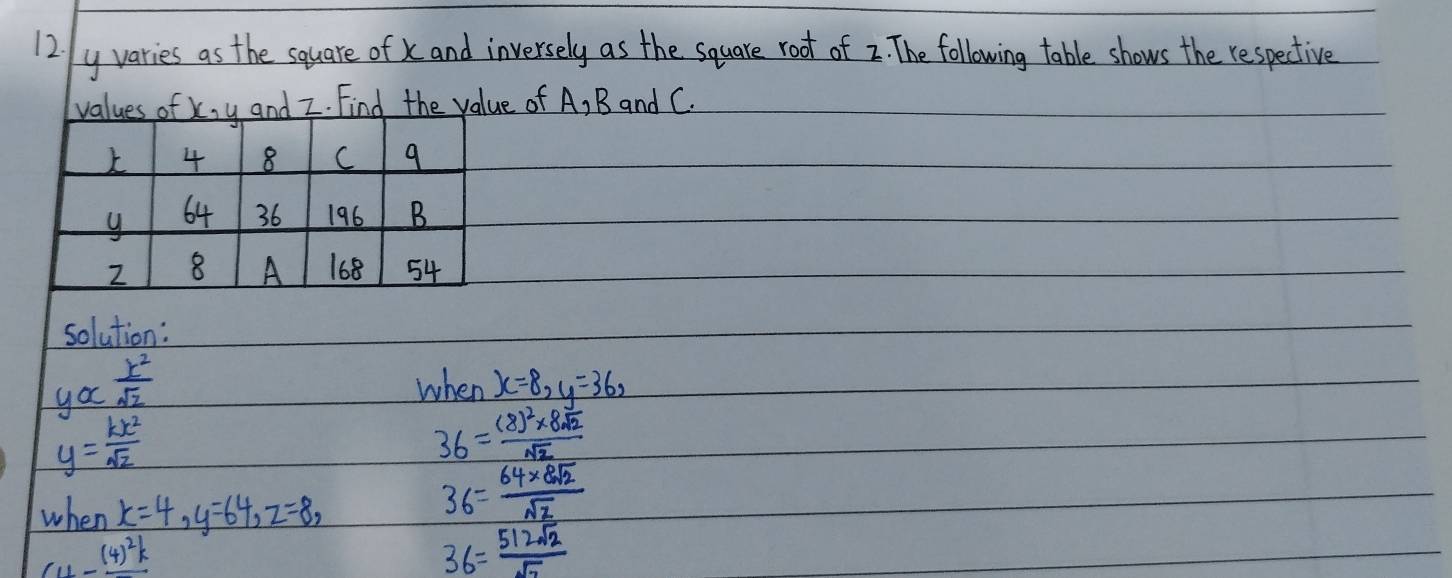 12. y varies as the square of x and inversely as the square root of z. The following table shows the respective
values of x, y and z. Find the value of A, B and C.
x 4 8 C 9
y 64 36 196 B
z 8 A 168 54
Solution:
y ∝ x²/√z
y = kx²/√z
when x=4, y=64, z=8,
(4)²k
When x=8, y=36,
36 = (8)²×8√2/√z
36 = 64×8√2/√z
36 = 512√2/√z